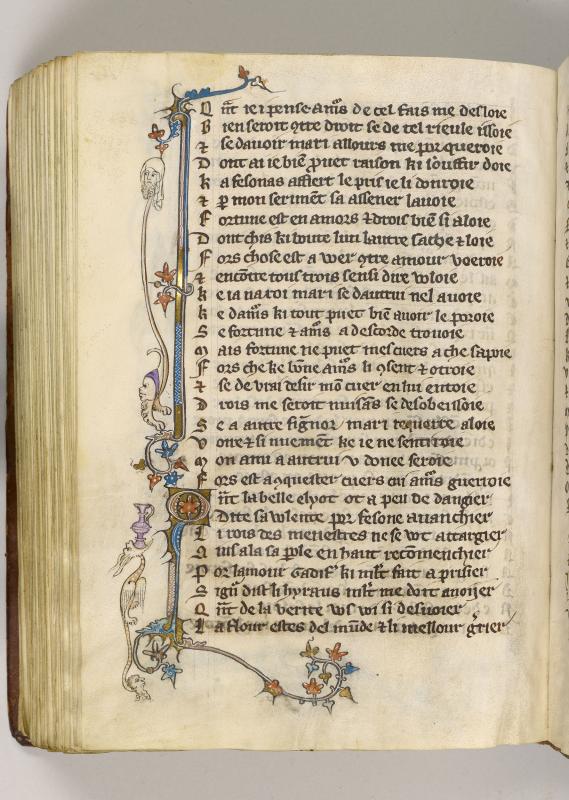 Q nt ie i pense amrs de tel fais me desloie
B ien seroit gtre droit se de tel rieule issoie
⁊ se dauoir mari allours me porqueroie
D ont ai ie bie puet raison ki souffir doie
k a fesonas affiert le pris ie li donroie
⁊ p mon serimet sa assener lauoie
F ortune est en amors ⁊ drois bie si aloie
D ont chis ki boute lun lautre sache ⁊ loie
F ors chose est a veir gtre amour voeroie
⁊ encotre tous trois sensi dire voloie
k e ia naroi mari se dautrui nel auoie
k e dams ki tout puet bie auoir le poroie
S e fortune ⁊ ams a descorde trouoie
M ais fortune ne puet mes cuers a che sapoie
F ors che ke bone ams li gsent ⁊ otroie
⁊ se de vrai desir mo cuer en lui enioie
D rois me seroit nuisas se desobeissoie
S e a autre signor mari requerre aloie
V one ⁊ si nuemet ke ie ne sentiroie
M on ami a autrui v donee seroie
F ors est a gquester cuers cui ams guerroie
Q nt la belle elyot ot a peu de dangier
D itte sa volente por fesone auanchier
L i rois des menestres ne se vot attargier
A uis ala sa pole en haut recomenchier
P or lamour Gadif ki mlt fait a prisier
S ignr dist li hyraus mlt me doit anoijer
Q nt de la verite vos voi si desuoier
L a flour estes del mude ⁊ li mellour grier